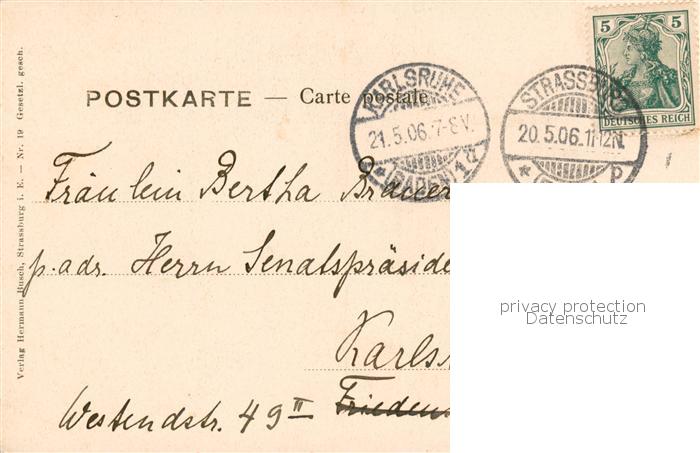 5 5
DEUTSCHES REICH
POSTKARTE — Carte postale
KARLSRUHE
21.5.06.7-8V.
*(BADEN)1d
STRASSBURG
20.5.06.11-12N.
Fräulein Bertha Brauer
p. adr. Herrn Senatspräside
Karls
Westendstr. 49 II Frieden
Verlag Hermann Busch, Strassburg i. E. — Nr. 19 Gesetzl. gesch.
privacy protection
Datenschutz